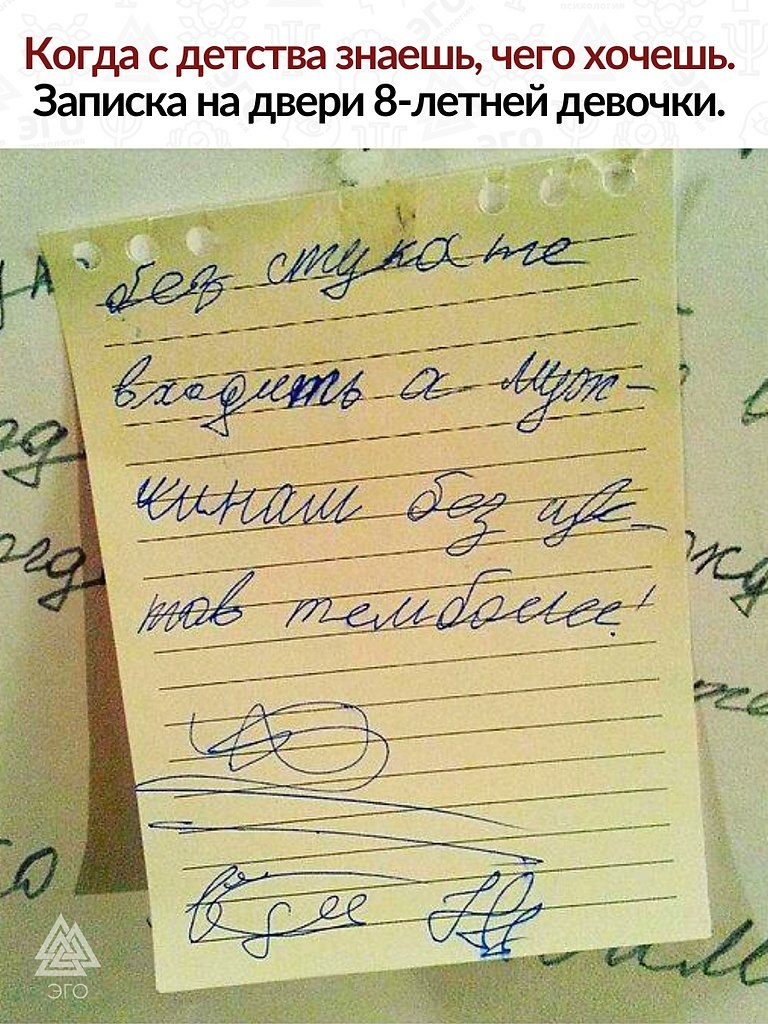 Когда с детства знаешь, чего хочешь.
Записка на двери 8-летней девочки.
без стука не
входить а муж-
чинам без цве-
тов тем более!
ЭГО